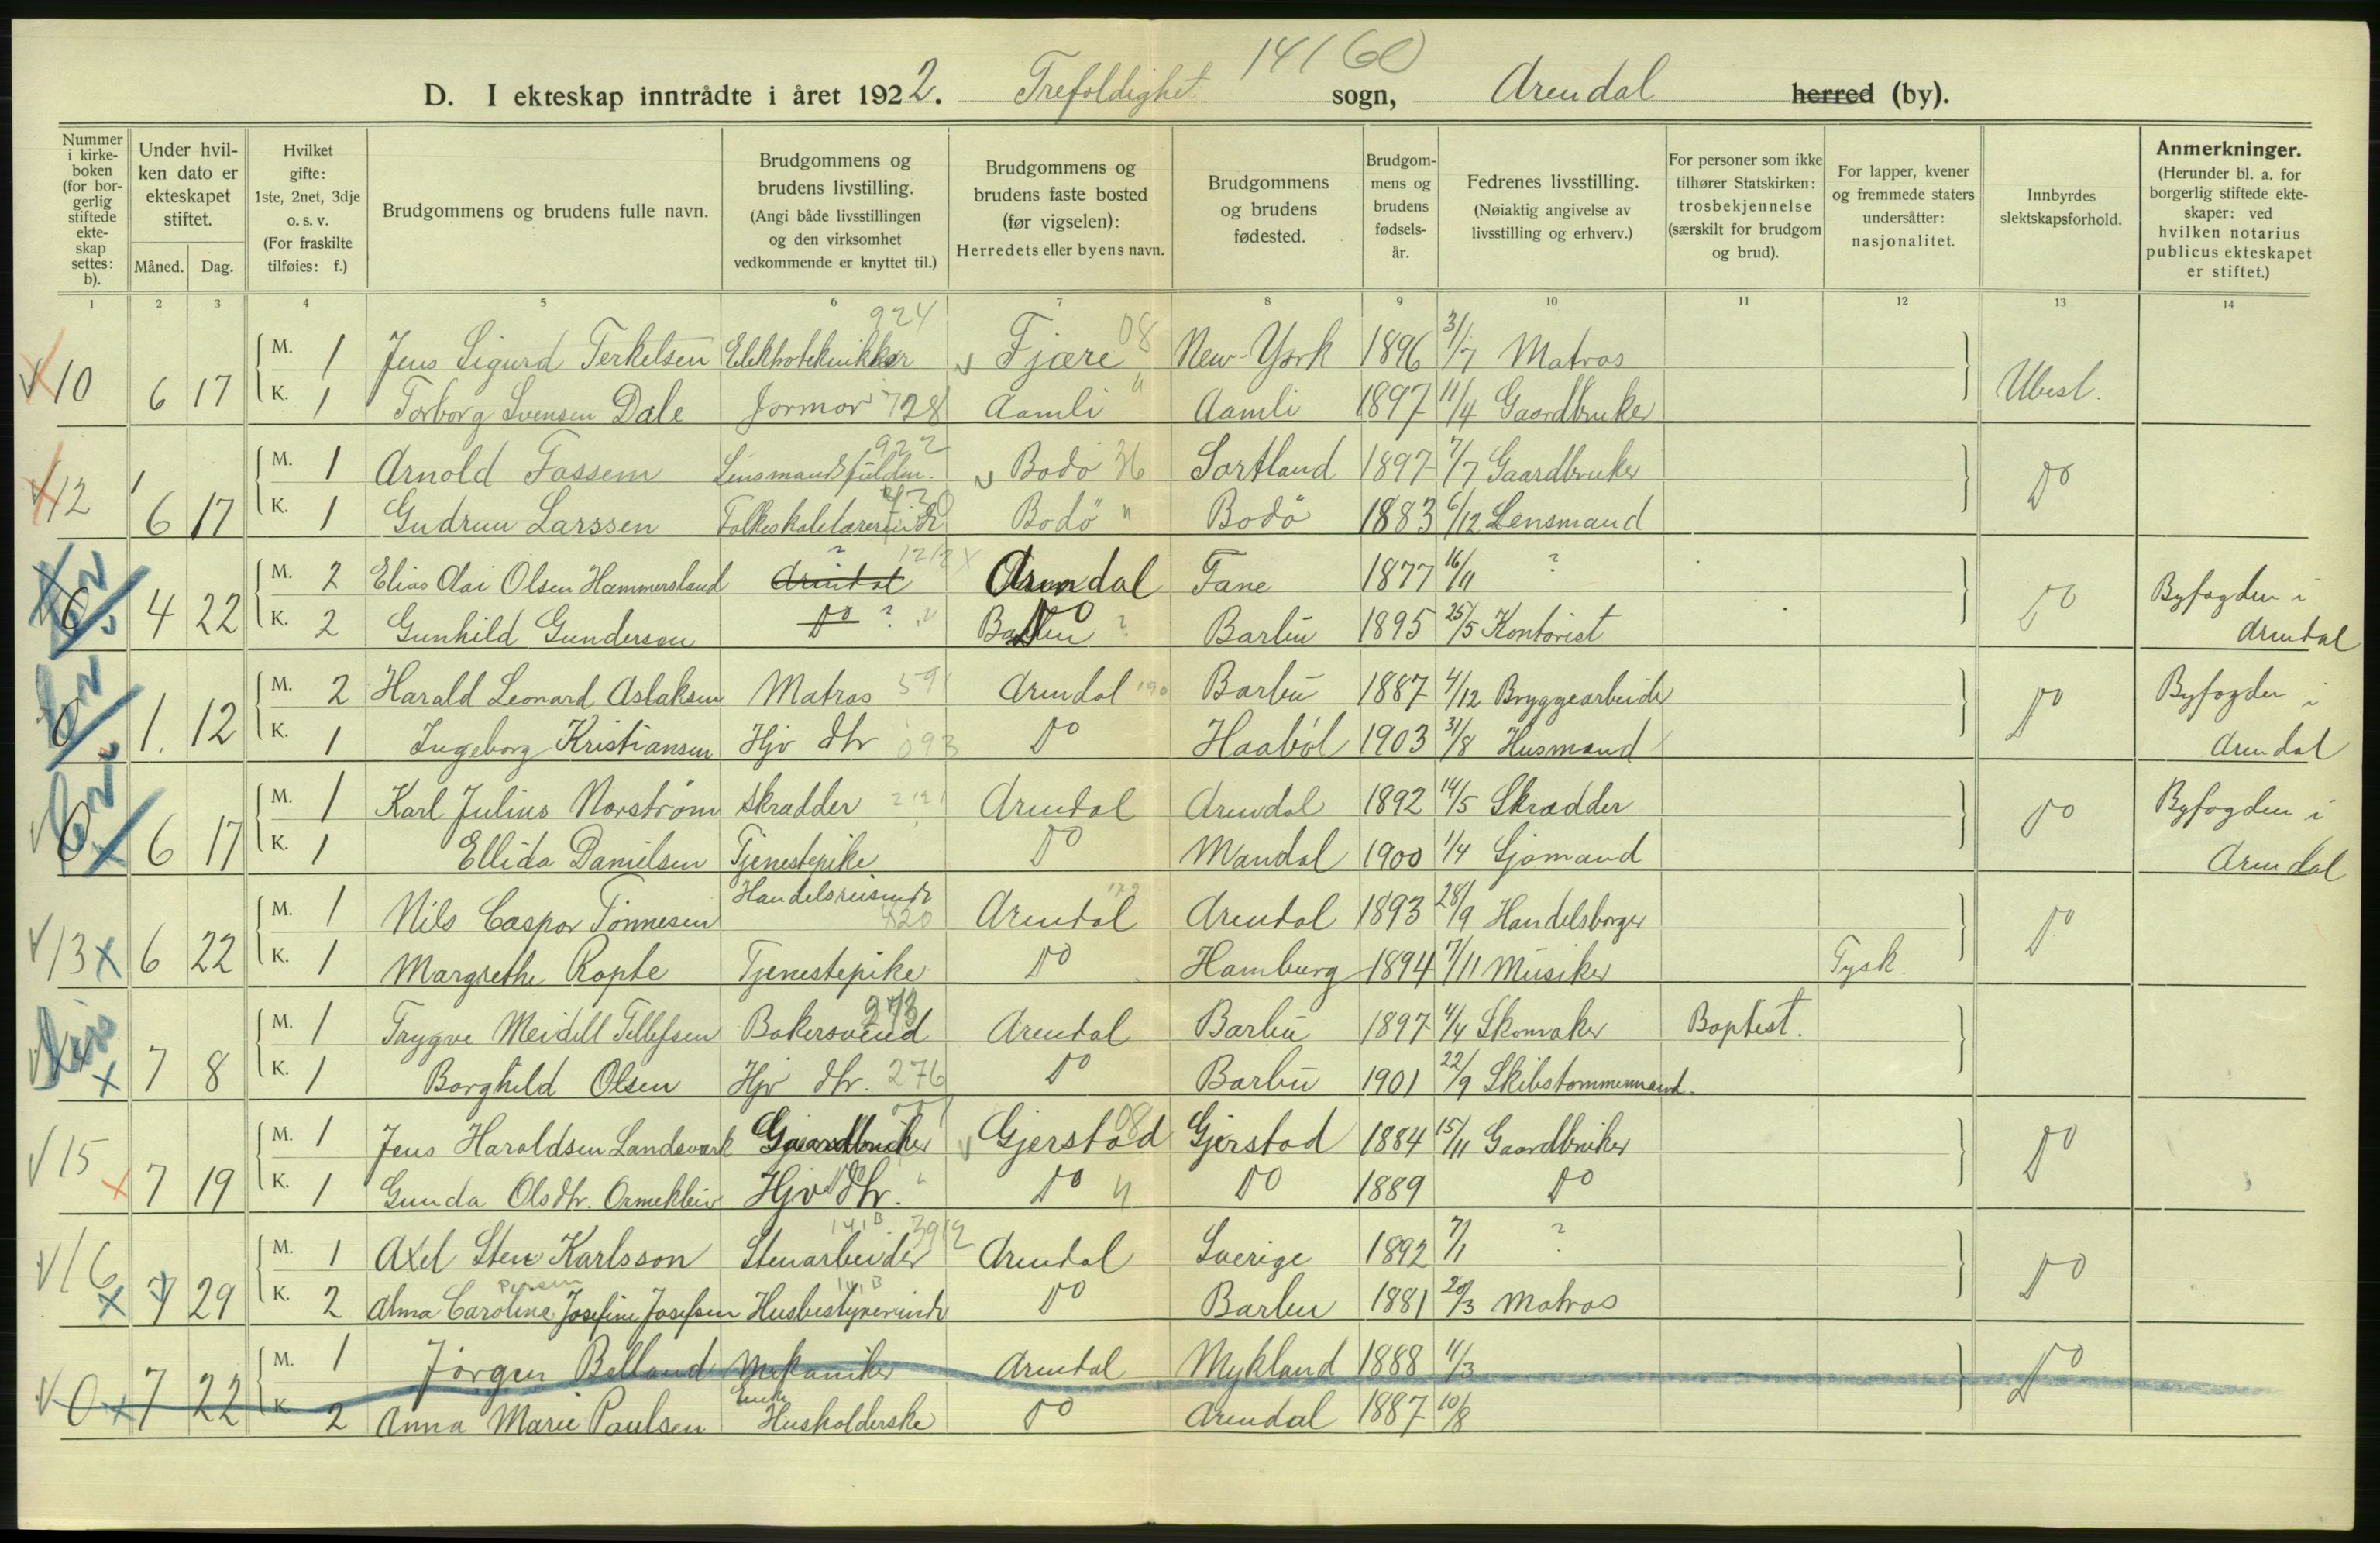 14160
D. I ekteskap inntrådte i året 1922. Trefoldighet sogn, Arendal herred (by).
Nummer i kirke- boken (for bor- gerlig stiftede ekte- skap settes: b).
Under hvil- ken dato er ekteskapet stiftet.
Måned. Dag.
Hvilket gifte: 1ste, 2net, 3dje o. s. v. (For fraskilte tilføies: f.)
Brudgommens og brudens fulle navn.
Brudgommens og brudens livstilling. (Angi både livsstillingen og den virksomhet vedkommende er knyttet til.)
Brudgommens og brudens faste bosted (før vigselen): Herredets eller byens navn.
Brudgommens og brudens fødested.
Brudgom- mens og brudens fødsels- år.
Fedrenes livsstilling. (Nøiaktig angivelse av livsstilling og erhverv.)
For personer som ikke tilhører Statskirken: trosbekjennelse (særskilt for brudgom og brud).
For lapper, kvener og fremmede staters undersåtter: nasjonalitet.
Innbyrdes slektskapsforhold.
Anmerkninger. (Herunder bl. a. for borgerlig stiftede ekte- skaper: ved hvilken notarius publicus ekteskapet er stiftet.)
1 2 3 4 5 6 7 8 9 10 11 12 13 14
924 08
M. 1 Jens Sigurd Terkelsen Elektroteknikker Fjære New-York 1896 3/7 Matros
10 6 17 K. 1 Torborg Svensen Dale Jormor 728 Aamli " Aamli 1897 11/4 Gaardbruker Ubesl.
922
M. 1 Arnold Fassem Lensmandsfuldm. Bodø 36 Sortland 1897 7/7 Gaardbruker
12 6 17 K. 1 Gudrun Larssen Folkeskolelærerinde Bodö " Bodö 1883 6/12 Lensmand Do
M. 2 Elias Olai Olsen Hammersland ? Arendal Arendal Fane 1877 16/11 ?
4 22 K. 2 Gunhild Gundersen Do ? Do ? Barbu 1895 25/5 Kontorist Do Byfogden i Arendal
M. 2 Harald Leonard Aslaksen Matros 59 Arendal Barbu 1887 4/12 Bryggearbeider
0 1. 12 K. 1 Ingeborg Kristiansen Hjv dtr 093 Do Haabøl 1903 31/8 Husmand Do Byfogden i Arendal
M. 1 Karl Julius Norstrøm Skrædder Arendal Arendal 1892 14/5 Skrædder
0 6 17 K. 1 Ellida Danielsen Tjenestepike Do Mandal 1900 1/4 Sjømand Do Byfogden i Arendal
M. 1 Nils Caspar Tönnesen Handelsreisende 420 Arendal Arendal 1893 28/9 Handelsborger
13 x 6 22 K. 1 Margrethe Ropte Tjenestepike Do Hamburg 1894 7/11 Musiker Tysk. Do
273
M. 1 Trygve Meidell Tellefsen Bakersvend Arendal Barbu 1897 4/4 Skomaker Baptist.
x 7 8 K. 1 Borghild Olsen Hjv dtr. 276 Do Barbu 1901 22/9 Skibstømmermand.
M. 1 Jens Haraldsen Landsvark Gaardbruker Gjerstad 08 Gjerstad 1884 15/11 Gaardbruker
15 x 7 19 K. 1 Gunda Olsdtr. Ormekleiv Hjv dtr. Do " Do 1889 Do Do
3912
M. 1 Axel Sten Karlsson Stenarbeider Arendal Sverige 1892 7/1 ?
16 x 7 29 K. 2 Alma Caroline Josefine Josefsen Husbestyrerinde Do Barbu 1881 20/3 Matros Do
M. 1 Jörgen Belland Mekaniker Arendal Mykland 1888 11/3
0 x 7 22 K. 2 Anna Marie Paulsen Enke Husholderske Do Arendal 1887 10/8 Do